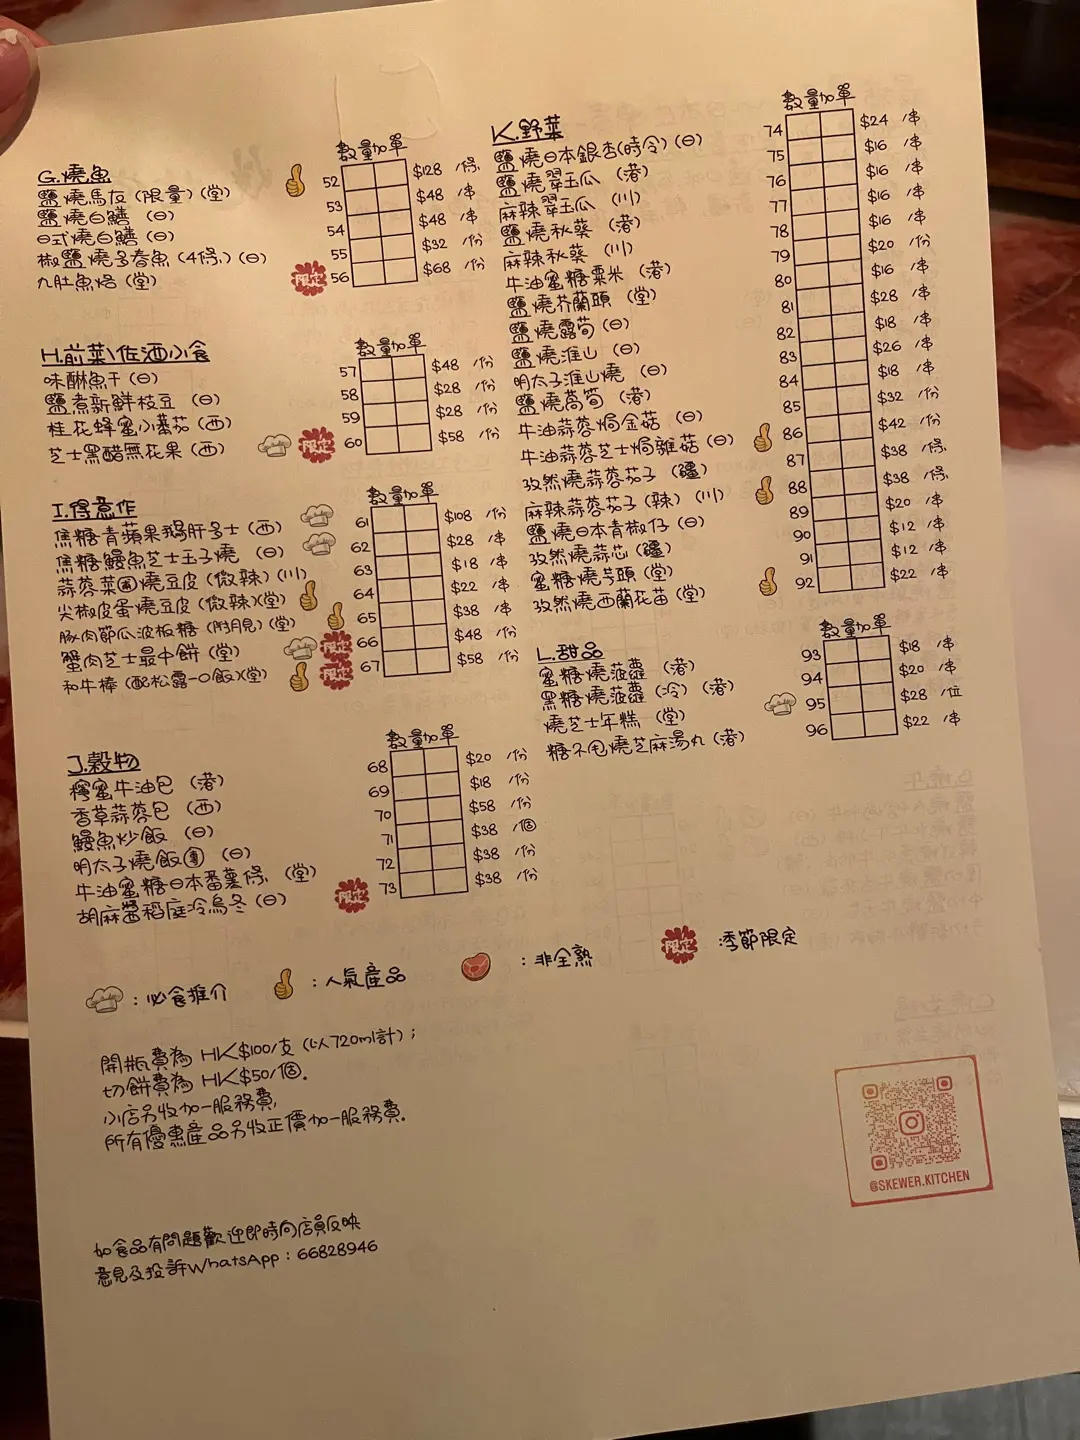 G.燒魚
數量加單
鹽燒馬友(限量)(堂) 52 $128 /條
鹽燒白鱔 (日) 53 $48 /串
日式燒白鱔 (日) 54 $48 /串
椒鹽燒多春魚(4條)(日) 55 $32 /份
九肚魚烙(堂) 限定 56 $68 /份
H.前菜\佐酒小食
數量加單
味醂魚干(日) 57 $48 /份
鹽煮新鮮枝豆 (日) 58 $28 /份
桂花蜂蜜小蕃茄(西) 59 $28 /份
芝士黑醋無花果(西) 限定 60 $58 /份
I.得意作
數量加單
焦糖青蘋果鵝肝多士(西) 61 $108 /份
焦糖鰻魚芝士玉子燒 (日) 62 $28 /串
蒜蓉菜圃燒豆皮(微辣)(川) 63 $18 /串
尖椒皮蛋燒豆皮(微辣)(堂) 64 $22 /串
豚肉節瓜波板糖(附月見)(堂) 65 $38 /串
蟹肉芝士最中餅(堂) 限定 66 $48 /份
和牛棒(配松露一口飯)(堂) 限定 67 $58 /份
J.穀物
數量加單
檸蜜牛油包 (港) 68 $20 /份
香草蒜蓉包(西) 69 $18 /份
鰻魚炒飯 (日) 70 $58 /份
明太子燒飯團 (日) 71 $38 /個
牛油蜜糖日本番薯條 (堂) 72 $38 /份
胡麻醬稻庭冷烏冬(日) 限定 73 $38 /份
K.野菜
數量加單
鹽燒日本銀杏(時令)(日) 74 $24 /串
鹽燒翠玉瓜 (港) 75 $16 /串
麻辣翠玉瓜 (川) 76 $16 /串
鹽燒秋葵 (港) 77 $16 /串
麻辣秋葵 (川) 78 $16 /串
牛油蜜糖粟米 (港) 79 $20 /份
鹽燒芥蘭頭 (堂) 80 $16 /串
鹽燒露筍(日) 81 $28 /串
鹽燒淮山 (日) 82 $18 /串
明太子淮山燒 (日) 83 $26 /串
鹽燒萵筍(港) 84 $18 /串
牛油蒜蓉焗金菇 (日) 85 $32 /份
牛油蒜蓉芝士焗雜菇(日) 86 $42 /份
孜然燒蒜蓉茄子 (疆) 87 $38 /條
麻辣蒜蓉茄子(辣)(川) 88 $38 /條
鹽燒日本青椒仔(日) 89 $20 /串
孜然燒蒜芯(疆) 90 $12 /串
蜜糖燒芋頭(堂) 91 $12 /串
孜然燒西蘭花苗(堂) 92 $22 /串
L.甜品
數量加單
蜜糖燒菠蘿 (港) 93 $18 /串
黑糖燒菠蘿(冷)(港) 94 $20 /串
燒芝士年糕 (堂) 95 $28 /位
糖不甩燒芝麻湯丸(港) 96 $22 /串
:必食推介 :人氣產品 :非全熟 限定 :季節限定
開瓶費為 HK$100/支(以720ml計);
切餅費為 HK$50/個.
小店另收加一服務費,
所有優惠產品另收正價加一服務費.
@SKEWER.KITCHEN
如食品有問題歡迎即時向店員反映
意見及投訴WhatsApp:66828946